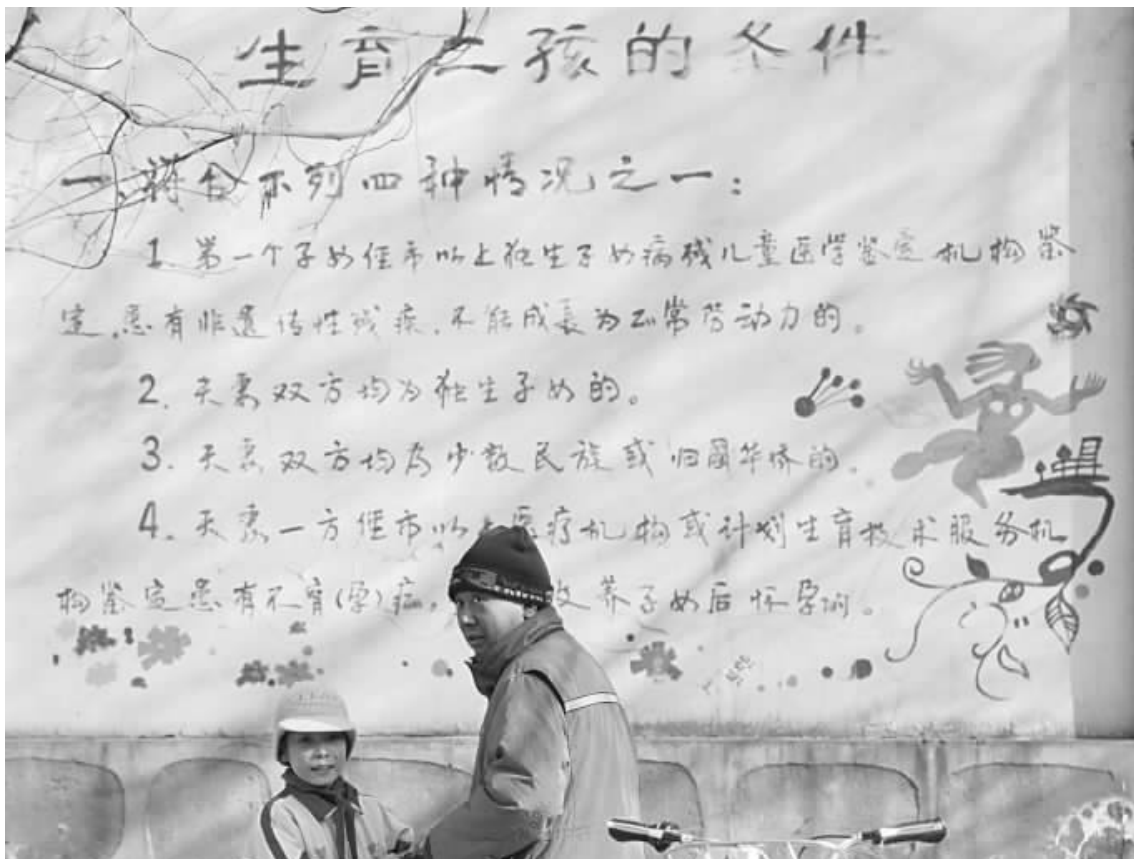 生育二孩的条件
一、符合下列四种情况之一：
1. 第一个子女经市以上独生子女病残儿童医学鉴定机构鉴
定，患有非遗传性残疾，不能成长为正常劳动力的。
2. 夫妻双方均为独生子女的。
3. 夫妻双方均为少数民族或归国华侨的。
4. 夫妻一方经市以上医疗机构或计划生育技术服务机
构鉴定患有不育(孕)症，收养子女后怀孕的。